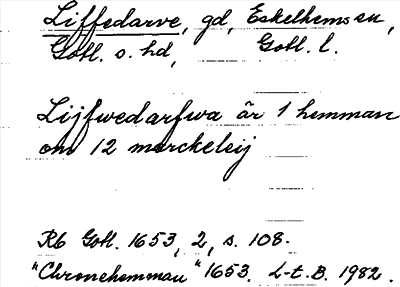 Liffedarve, gd, Eskelhems sn,
Gotl. s. hd, Gotl. l.
Lijfwedarfwa är 1 hemman
om 12 merckeleij
Rb Gotl. 1653, 2, s. 108.
"Chronehemman" 1653. L-t. B. 1982.